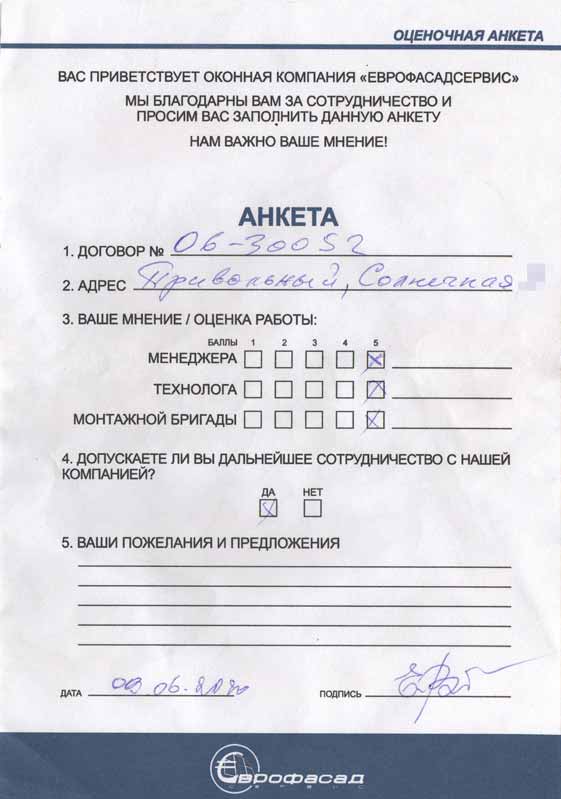 ОЦЕНОЧНАЯ АНКЕТА
ВАС ПРИВЕТСТВУЕТ ОКОННАЯ КОМПАНИЯ «ЕВРОФАСАДСЕРВИС»
МЫ БЛАГОДАРНЫ ВАМ ЗА СОТРУДНИЧЕСТВО И
ПРОСИМ ВАС ЗАПОЛНИТЬ ДАННУЮ АНКЕТУ
НАМ ВАЖНО ВАШЕ МНЕНИЕ!
АНКЕТА
1. ДОГОВОР № 06-30052
2. АДРЕС Привольный, Солнечная
3. ВАШЕ МНЕНИЕ / ОЦЕНКА РАБОТЫ:
БАЛЛЫ 1 2 3 4 5
МЕНЕДЖЕРА
ТЕХНОЛОГА
МОНТАЖНОЙ БРИГАДЫ
4. ДОПУСКАЕТЕ ЛИ ВЫ ДАЛЬНЕЙШЕЕ СОТРУДНИЧЕСТВО С НАШЕЙ
КОМПАНИЕЙ?
ДА НЕТ
5. ВАШИ ПОЖЕЛАНИЯ И ПРЕДЛОЖЕНИЯ
ДАТА 09.06.2020 ПОДПИСЬ
Еврофасад
СЕРВИС